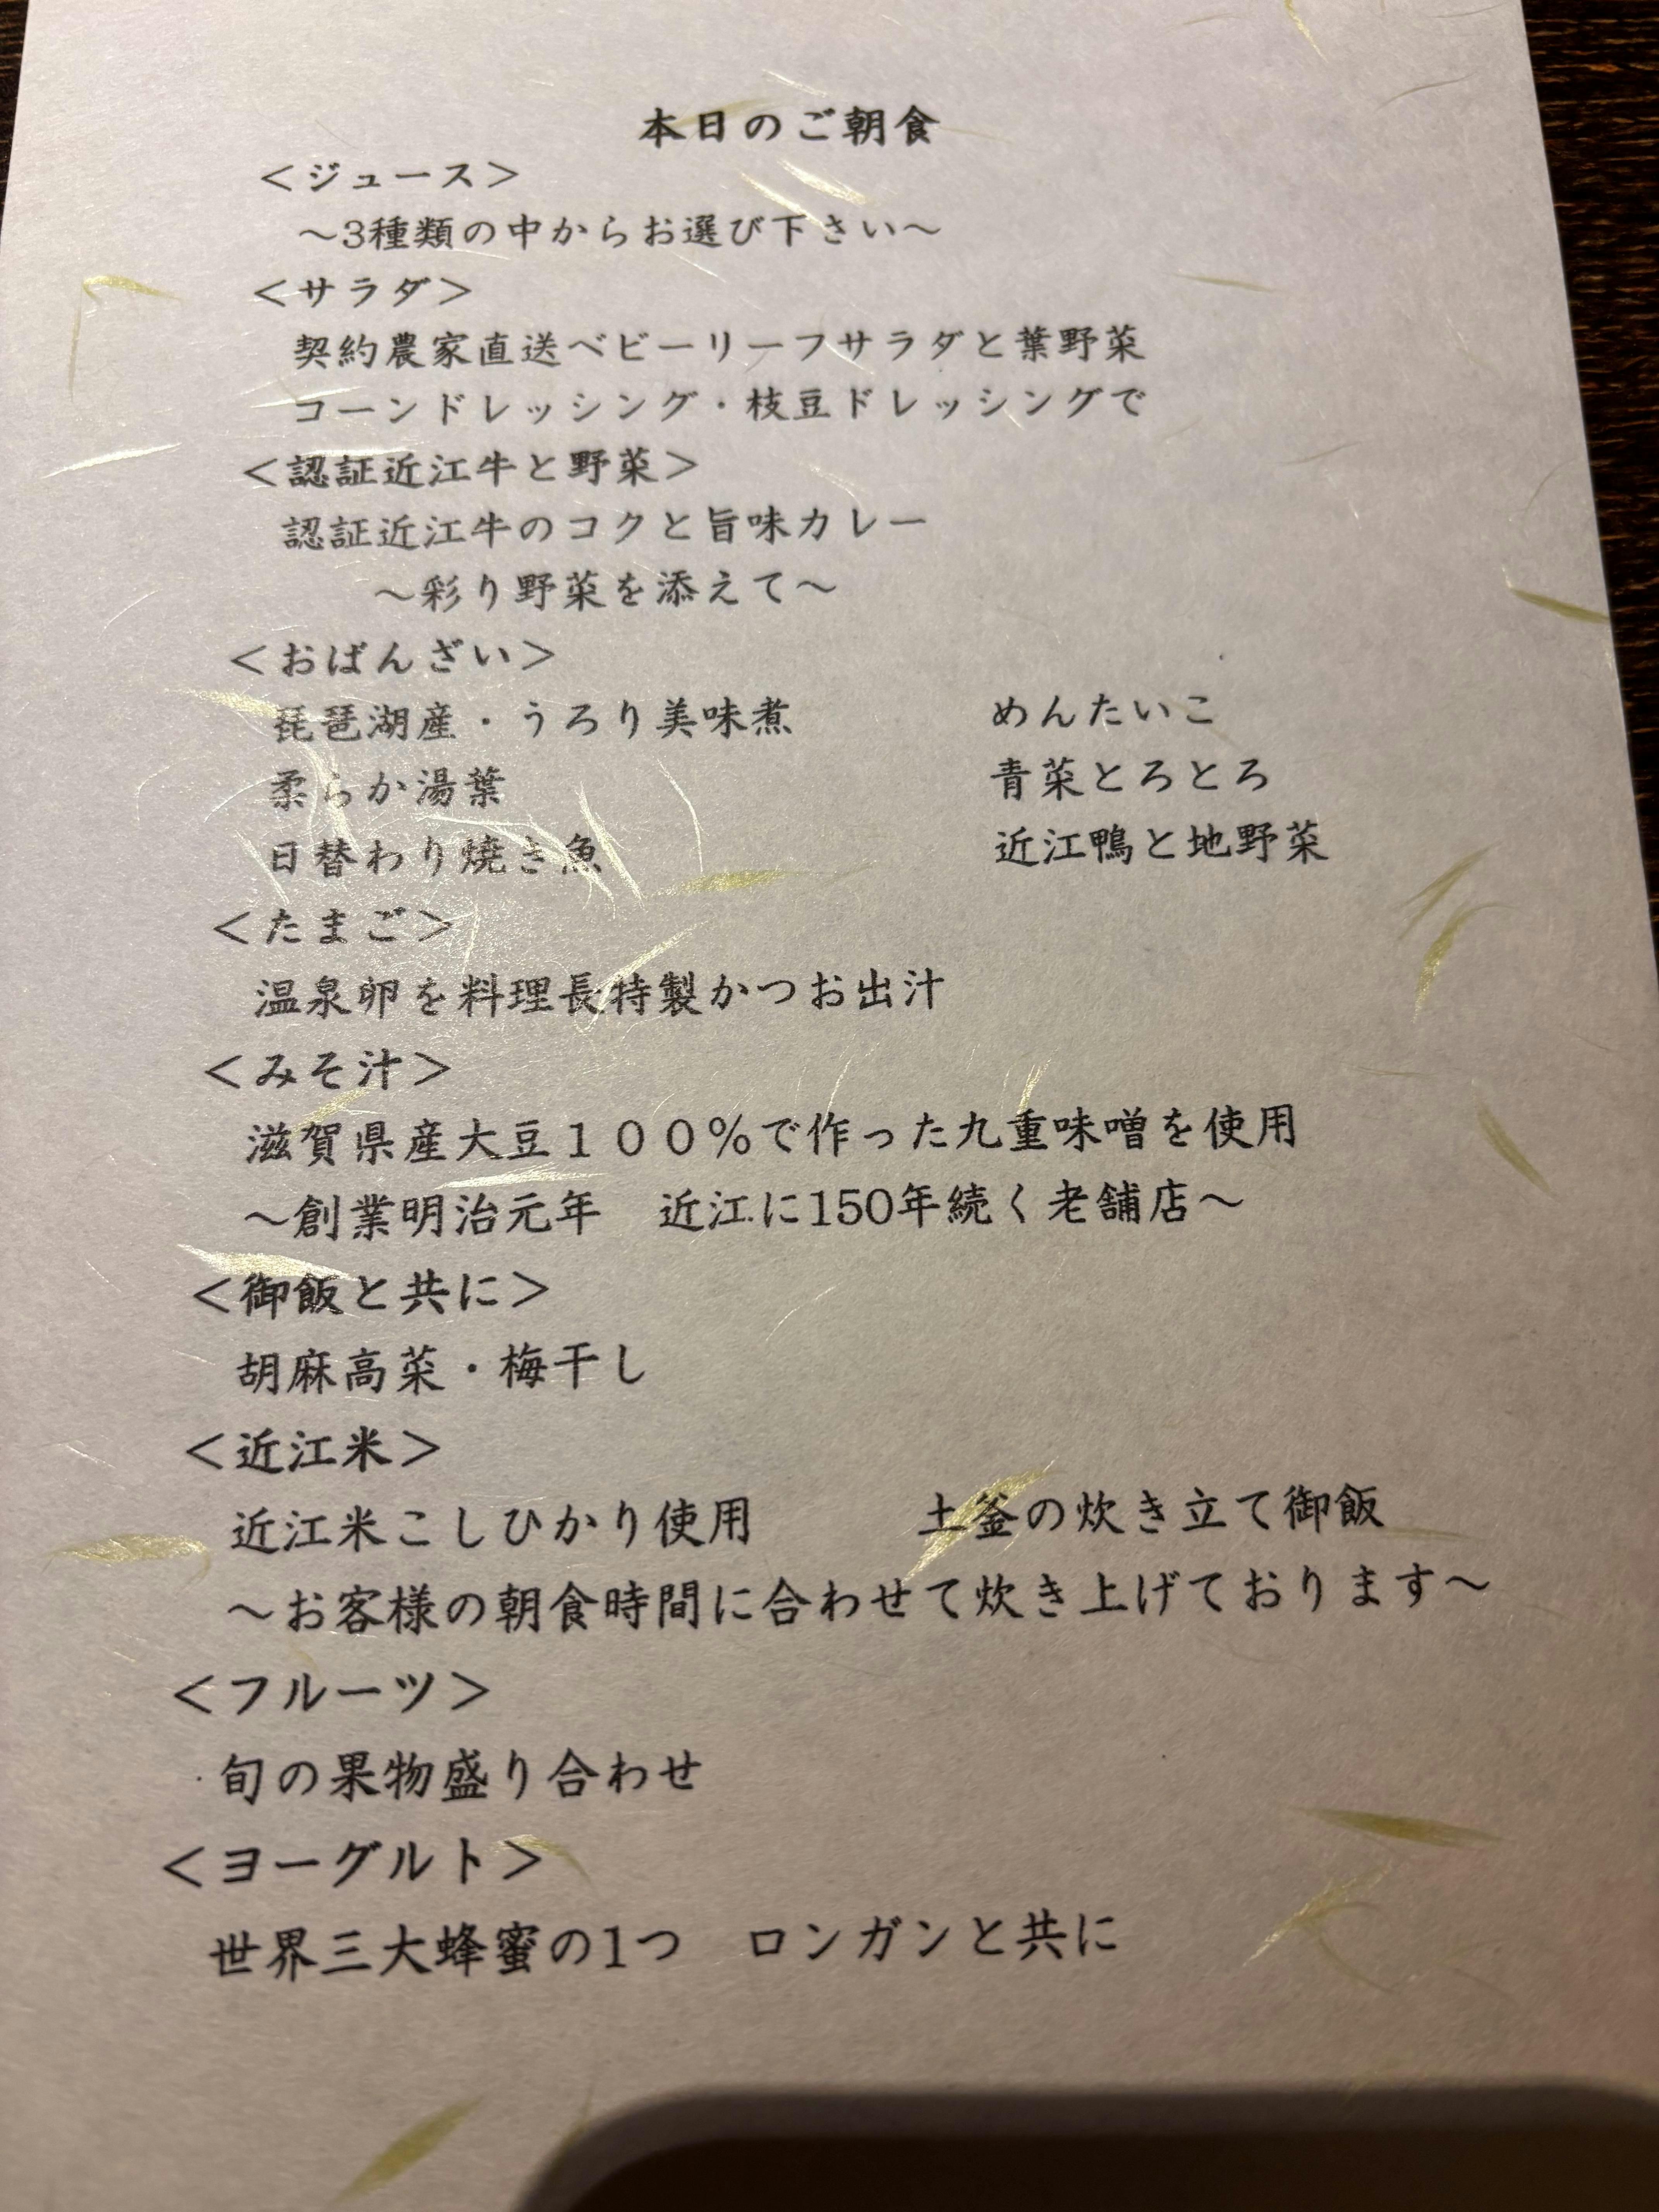 本日のご朝食
＜ジュース＞
～3種類の中からお選び下さい～
＜サラダ＞
契約農家直送ベビーリーフサラダと葉野菜
コーンドレッシング・枝豆ドレッシングで
＜認証近江牛と野菜＞
認証近江牛のコクと旨味カレー
～彩り野菜を添えて～
＜おばんざい＞
琵琶湖産・うろり美味煮　めんたいこ
柔らか湯葉　青菜とろとろ
日替わり焼き魚　近江鴨と地野菜
＜たまご＞
温泉卵を料理長特製かつお出汁
＜みそ汁＞
滋賀県産大豆１００％で作った九重味噌を使用
～創業明治元年　近江に150年続く老舗店～
＜御飯と共に＞
胡麻高菜・梅干し
＜近江米＞
近江米こしひかり使用　土釜の炊き立て御飯
～お客様の朝食時間に合わせて炊き上げております～
＜フルーツ＞
旬の果物盛り合わせ
＜ヨーグルト＞
世界三大蜂蜜の1つ　ロンガンと共に